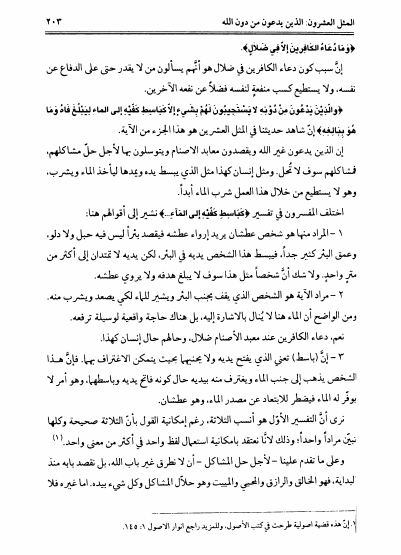 المثل العشرون: الذين يدعون من دون الله ٢٠٣
﴿وَمَا دُعَاءُ الكَافِرِينَ إلاّ في ضَلَالٍ﴾.
إنَّ سبب كون دعاء الكافرين في ضلال هو أنّهم يسألون من لا يقدر حتى على الدفاع عن
نفسه، ولا يستطيع كسب منفعةٍ لنفسه فضلاً عن نفعه الآخرين.
﴿والَّذِينَ يَدْعُونَ مِنْ دُوْنِهِ لاَ يَسْتَجِيبُونَ لَهُمْ بِشَيءٍ إلاَّ كَبَاسطِ كَفَّيْهِ إلى الماءِ لِيَبْلُغَ فَاهُ وَمَا
هُوَ بِبَالِغِهِ﴾ إنّ شاهد حديثنا في المثل العشرين هو هذا الجزء من الآية.
إن الذين يدعون غير الله ويقصدون معابد الاصنام ويتوسلون بها لأجل حلّ مشاكلهم،
فمشاكلهم سوف لا تُحل. ومثل إنسان كهذا مثل الذي يبسط يده ويمدها ليأخذ الماء ويشرب،
وهو لا يستطيع من خلال هذا العمل شرب الماء أبداً.
اختلف المفسرون في تفسير ﴿كَبَاسِطِ كَفَّيْهِ إلى المَآءِ..﴾ نشير إلى أقوالهم هنا:
١ – المراد منها هو شخص عطشان يريد إرواء عطشه فيقصد بئراً ليس فيه حبل ولا دلو،
وعمق البئر كثير جداً، فيبسط هذا الشخص يديه في البئر، لكن يديه لا تمتدان إلى أكثر من
مترٍ واحدٍ. ولا شك أنَّ شخصاً مثل هذا سوف لا يبلغ هدفه ولا يروي عطشه.
٢ – مراد الآية هو الشخص الذي يقف بجنب البئر ويشير للماء لكي يصعد ويشرب منه.
ومن الواضح أن الماء هنا لا يُنال بالاشارة إليه، بل هناك حاجة واقعية لوسيلة ترفعه.
نعم، دعاء الكافرين عند معبد الأصنام ضلال، وحالهم حال إنسان كهذا.
٣ – إنَّ (باسط) تعني الذي يفتح يديه ولا يجنبهما بحيث يتمكن الاغتراف بهما. فإنَّ هذا
الشخص يذهب إلى جنب الماء ويغترف منه بيديه حال كونه فاتح يديه وباسطها، وهو أمر لا
يوفّر له الماء فيضطر للابتعاد عن مصدر الماء، وهو عطشان.
نرى أنَّ التفسير الأوّل هو أنسب الثلاثة، رغم إمكانية القول بأنّ الثلاثة صحيحة وكلها
تبيّن مراداً واحداً؛ وذلك لأنّا نعتقد بامكانية استعمال لفظ واحد في أكثر من معنى واحد.(١)
وعلى ما تقدم علينا – لأجل حل المشاكل – أن لا نطرق غير باب الله، بل نقصد بابه منذ
البداية، فهو الخالق والرازق والمحيي والمميت وهو حلّال المشاكل وكل شيء بيده. اما غيره فلا
١. إنّ هذه قضية اصولية طرحت في كتب الأصول، وللمزيد راجع انوار الاصول ١: ١٤٥.